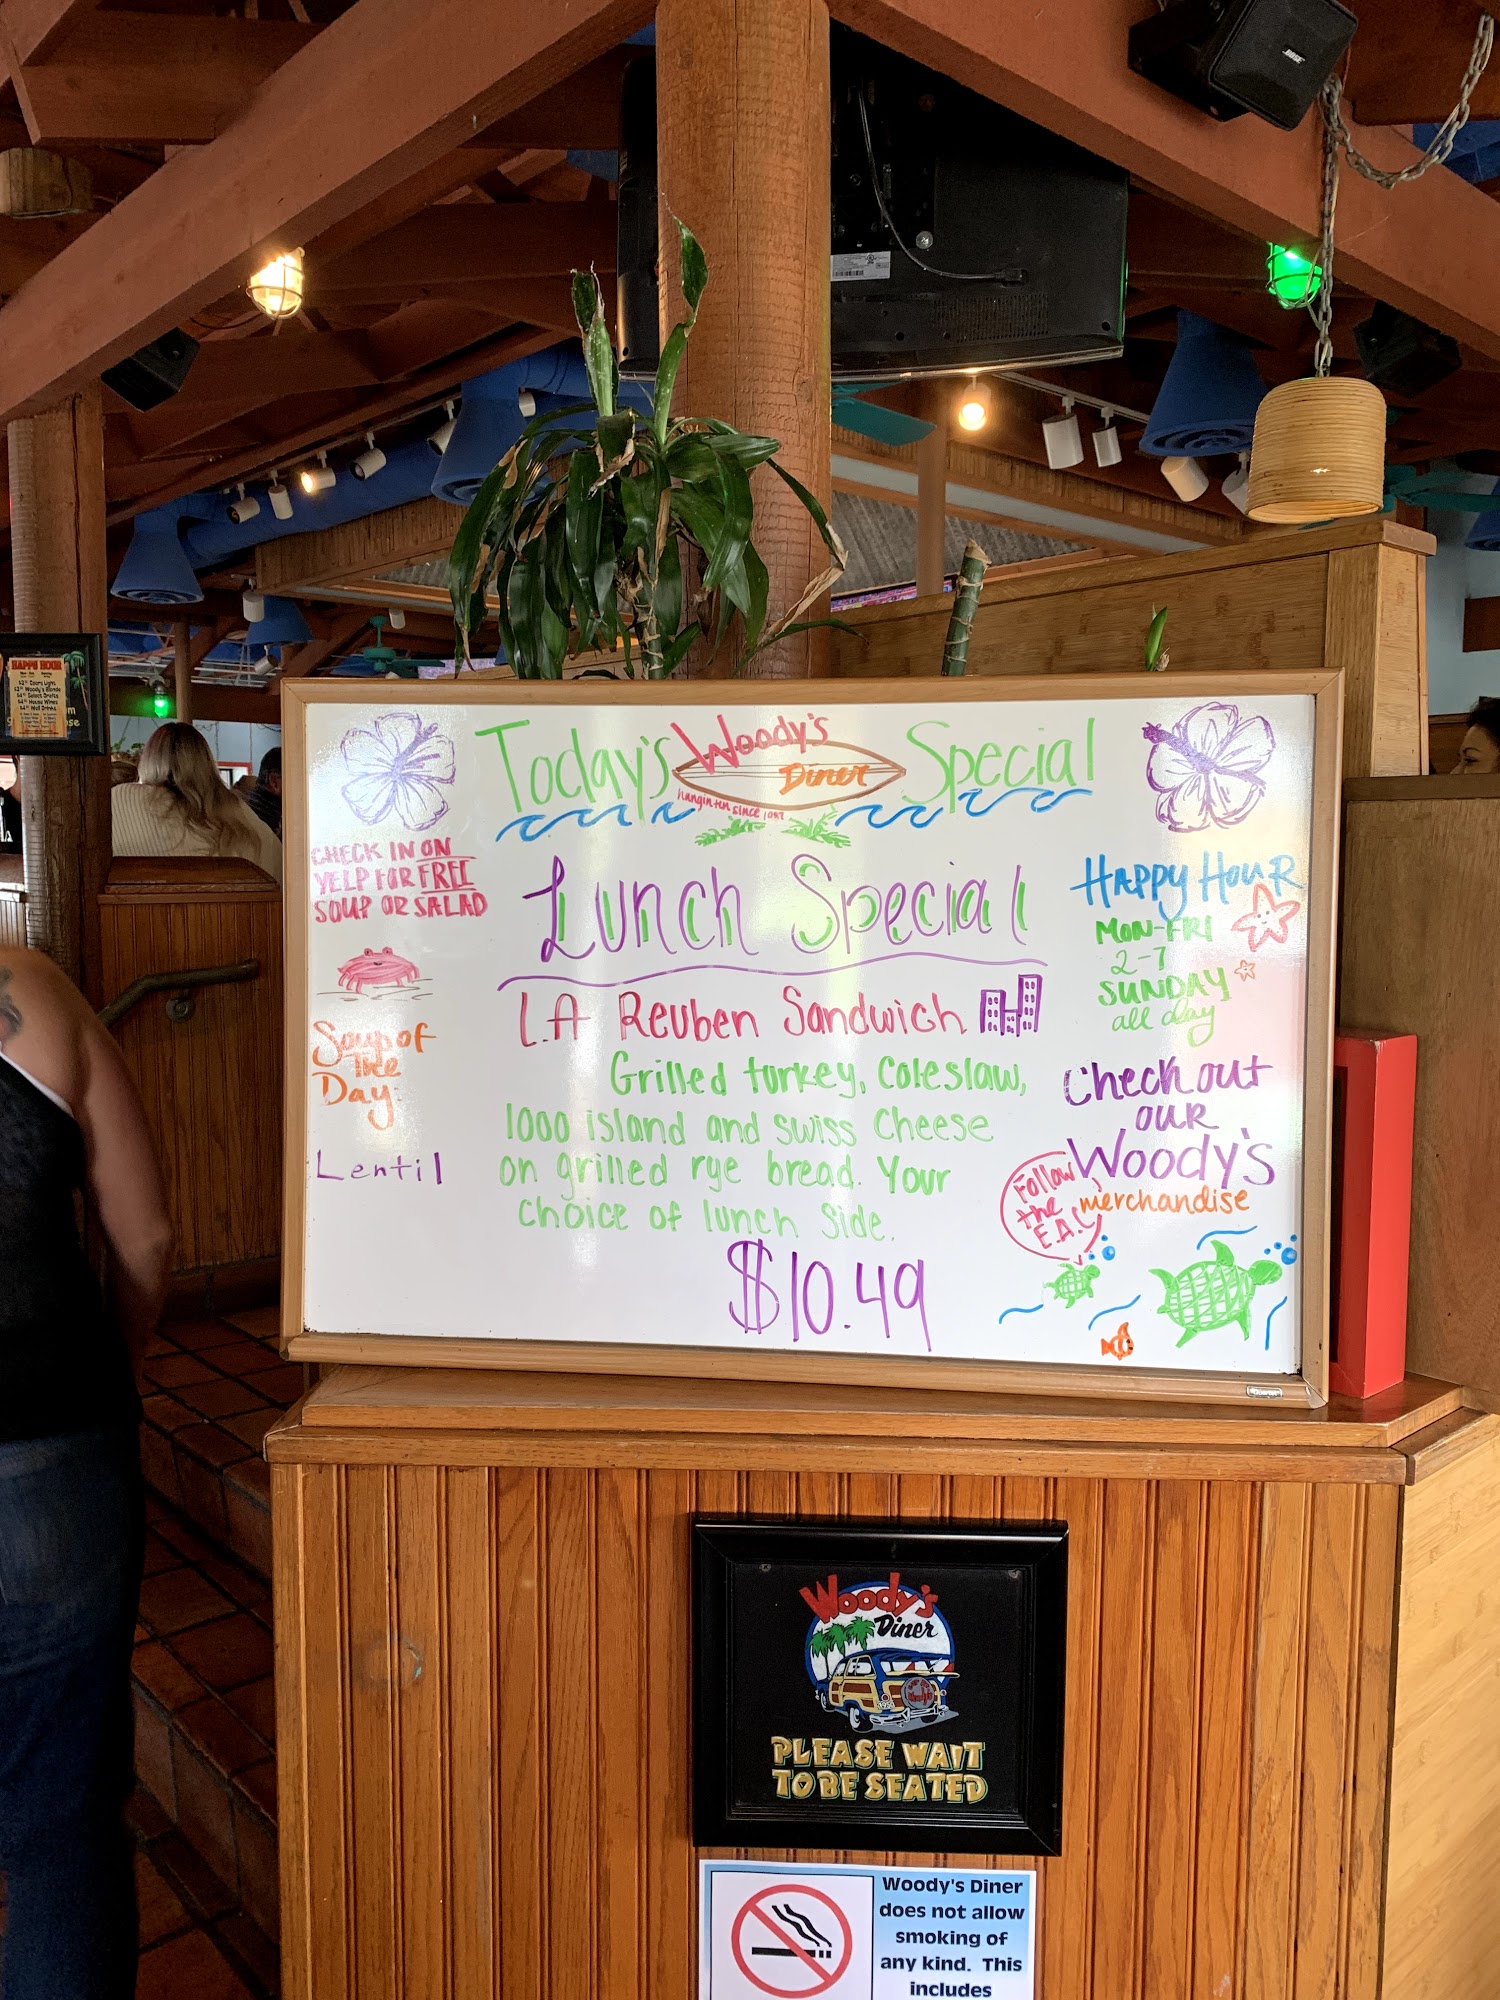 BOSE
HAPPY HOUR
Today's Woody's Diner Special
hangin ten since 1087
CHECK IN ON
YELP FOR FREE
SOUP OR SALAD
Soup of
The
Day:
Lentil
Lunch Special
L.A Reuben Sandwich
Grilled turkey, Coleslaw,
1000 island and swiss Cheese
on grilled rye bread. Your
choice of lunch side.
$10.49
HAPPY HOUR
MON-FRI
2-7
SUNDAY
all day
Check out
our
Woody's
merchandise
Follow
the
E.A.C
Woody's
Diner
PLEASE WAIT
TO BE SEATED
Woody's Diner
does not allow
smoking of
any kind. This
includes